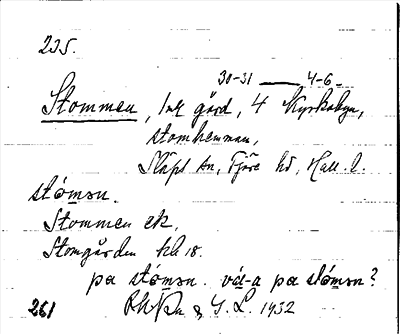 235.
30-31 — 4-6-
Stommen, 1 mt gård, 4 Kyrkobyn,
stomhemman,
Släps sn, Fjäre hd, Hall. l.
stómən.
Stommen ek.
Stomgården kb 18.
pa stómən. vá-a pa stómən?
261 & G. L. 1932